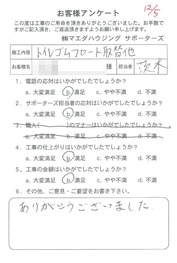 お客様アンケート
12/5
この度は工事のご用命を頂きありがとうございました。お手数で
すがご記入頂き、ご返送頂きますようお願い申し上げます。
㈱マエダハウジング サポーターズ
施工内容 トイレゴムフロート取替他
氏名 様 担当 茨木
1. 電話の対応はいかがでしたでしょうか?
a. 大変満足 b. 満足 c. やや不満 d. 不満
2. サポーターズ担当者の応対はいかがでしたでしょうか?
a. 大変満足 b. 満足 c. やや不満 d. 不満
のマナーはいかがでしたでしょうか?
a. 大変満足 b. 満足 c. やや不満 d. 不満
4. 工事の仕上がりはいかがでしたでしょうか?
a. 大変満足 b. 満足 c. やや不満 d. 不満
5. 工事の金額はいかがでしたでしょうか?
a. 大変満足 b. 満足 c. やや不満 d. 不満
6. その他、ご意見・ご要望をお書き下さい。
ありがとうございました